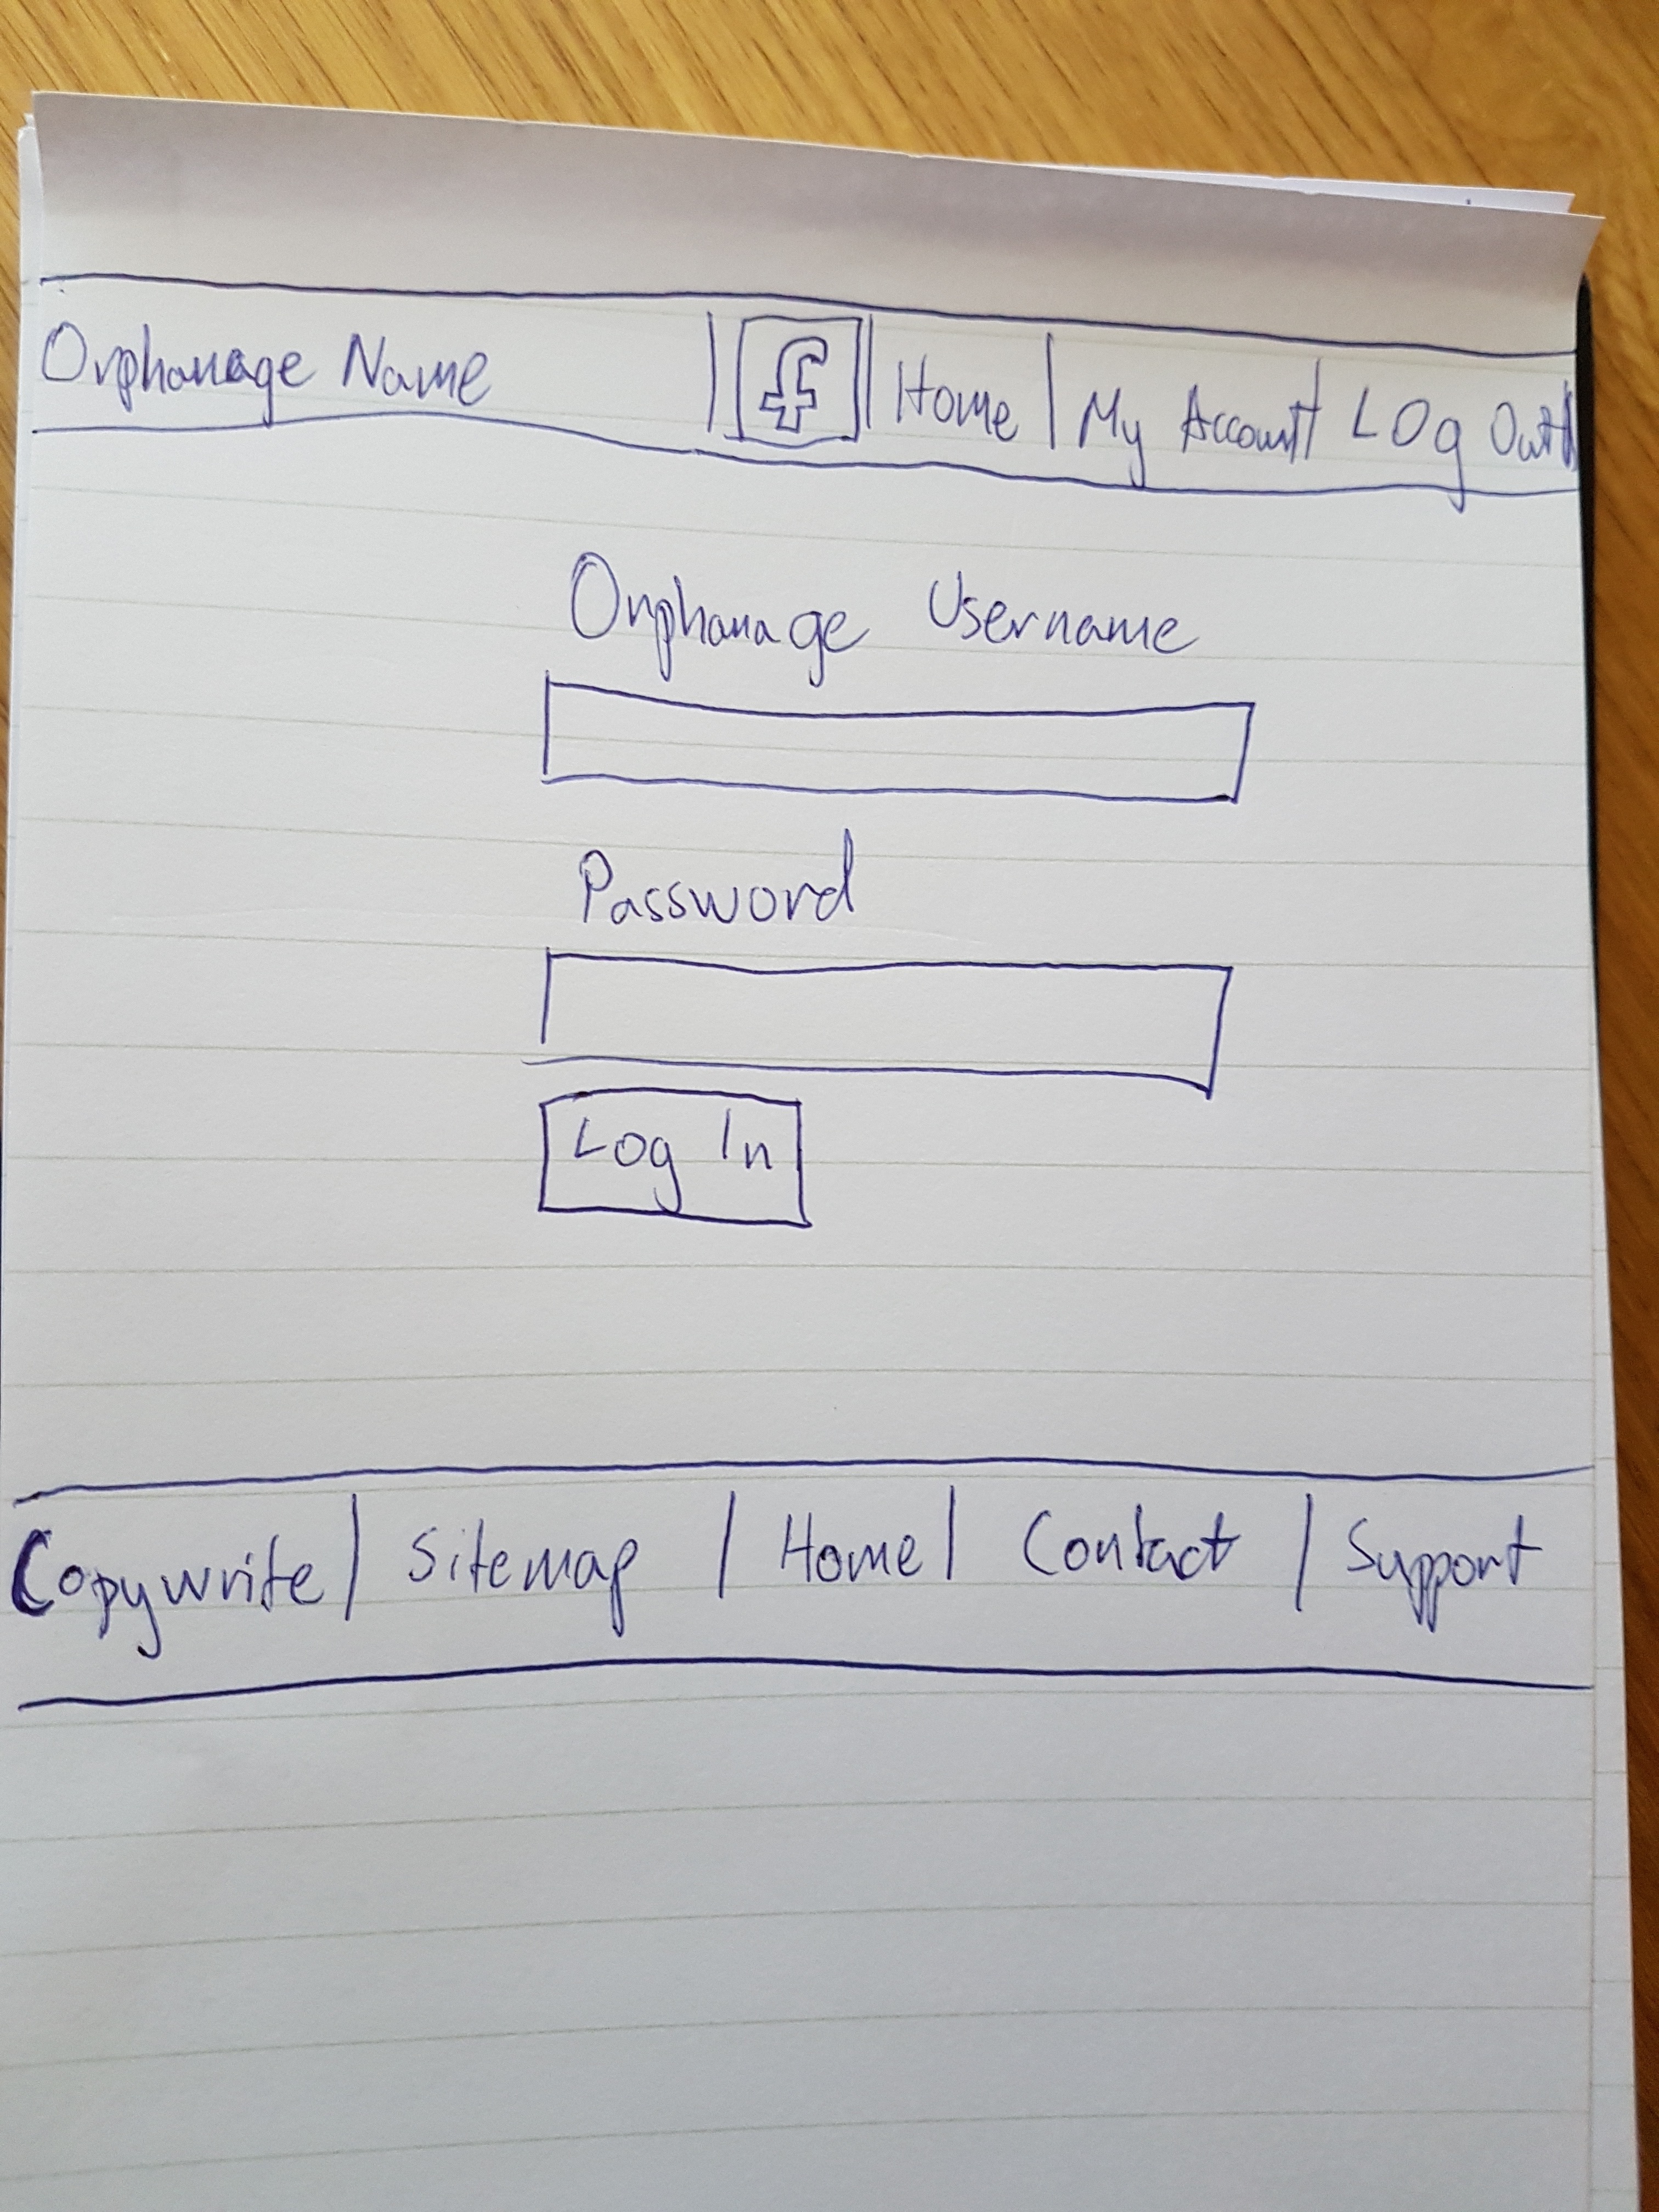 Orphanage Name | f | Home | My Account | Log Out |
Orphanage Username
Password
Log In
Copywrite | Sitemap | Home | Contact | Support